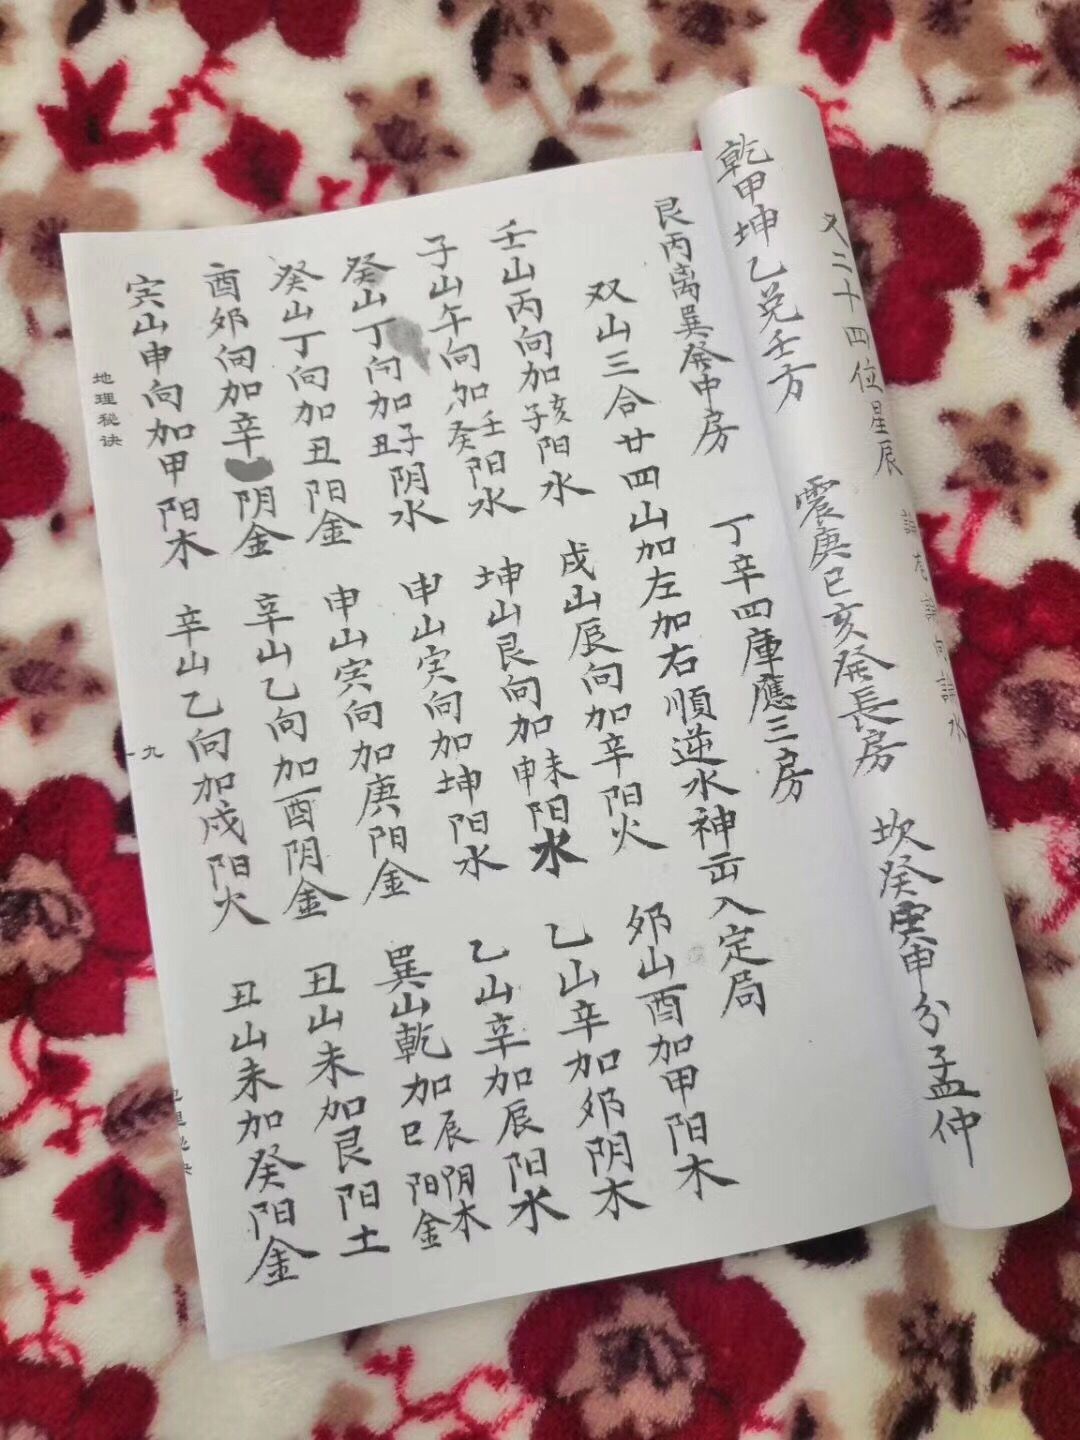 又二十四位星辰
乾甲坤乙兑壬方 震庚巳亥癸長房 坎癸寅申分孟仲
艮丙离巽癸中房 丁辛四庫應三房
双山三合廿四山加左加右順逆水神 入定局
壬山丙向加亥子阳水 戌山辰向加辛阳火 夘山酉加甲阳木
子山午向加壬癸阳水 坤山艮向加未申阳水 乙山辛加夘阴木
癸山丁向加子丑阴水 申山寅向加坤阳水 乙山辛加辰阳水
癸山丁向加丑阳金 申山寅向加庚阳金 巽山乾加辰巳阴木阳金
酉夘向加辛阴金 辛山乙向加酉阴金 丑山未加艮阳土
寅山申向加甲阳木 辛山乙向加戌阳火 丑山未加癸阳金
地理秘诀
一九